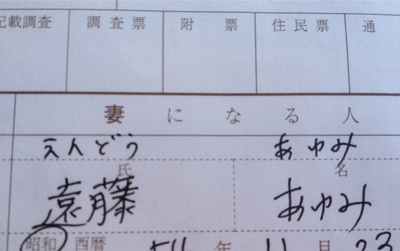 記載調査 調査票 附票 住民票 通
妻になる人
えんどう あゆみ
氏 名
遠藤 あゆみ
昭和 西暦 年 11 月 23